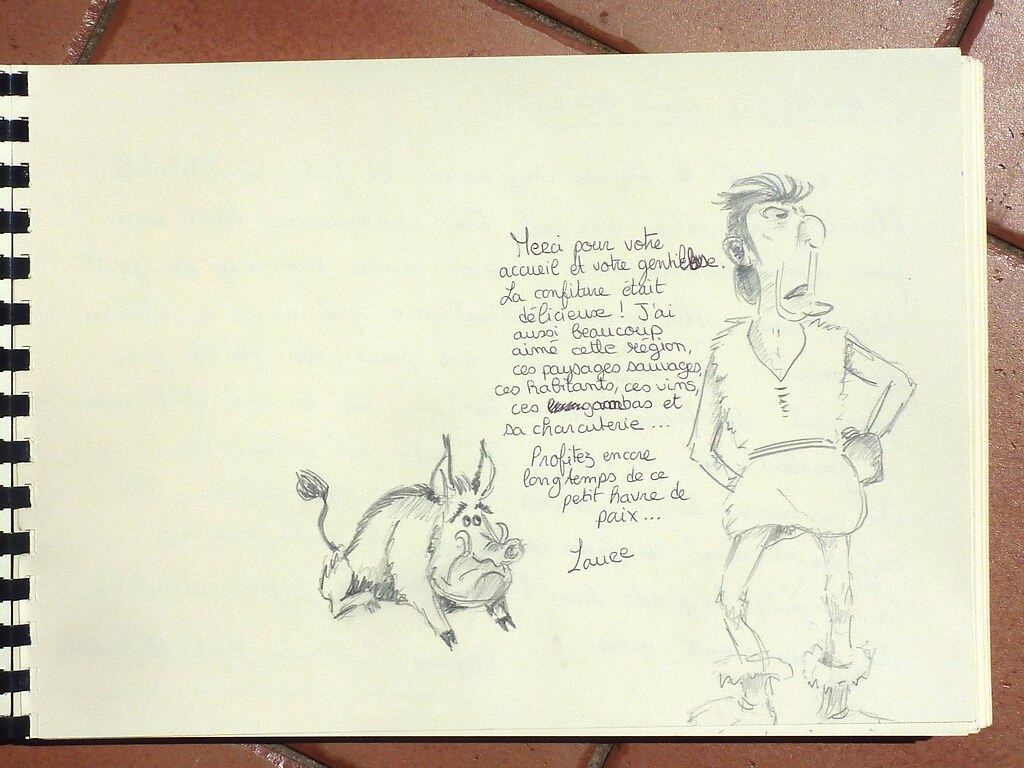 Merci pour votre
accueil et votre gentillesse.
La confiture était
délicieuse ! J'ai
aussi beaucoup
aimé cette région,
ces paysages sauvages,
ces habitants, ces vins,
ces gambas et
sa charcuterie ...
Profitez encore
longtemps de ce
petit havre de
paix ...
Laure